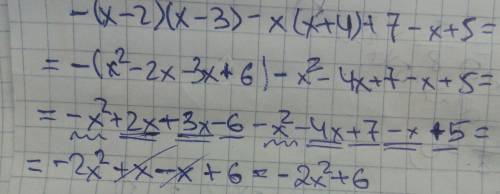 -(x-2)(x-3)-x(x+4)+7-x+5=
=-(x²-2x-3x+6)-x²-4x+7-x+5=
=-x²+2x+3x-6-x²-4x+7-x+5=
=-2x²+x-x+6=-2x²+6